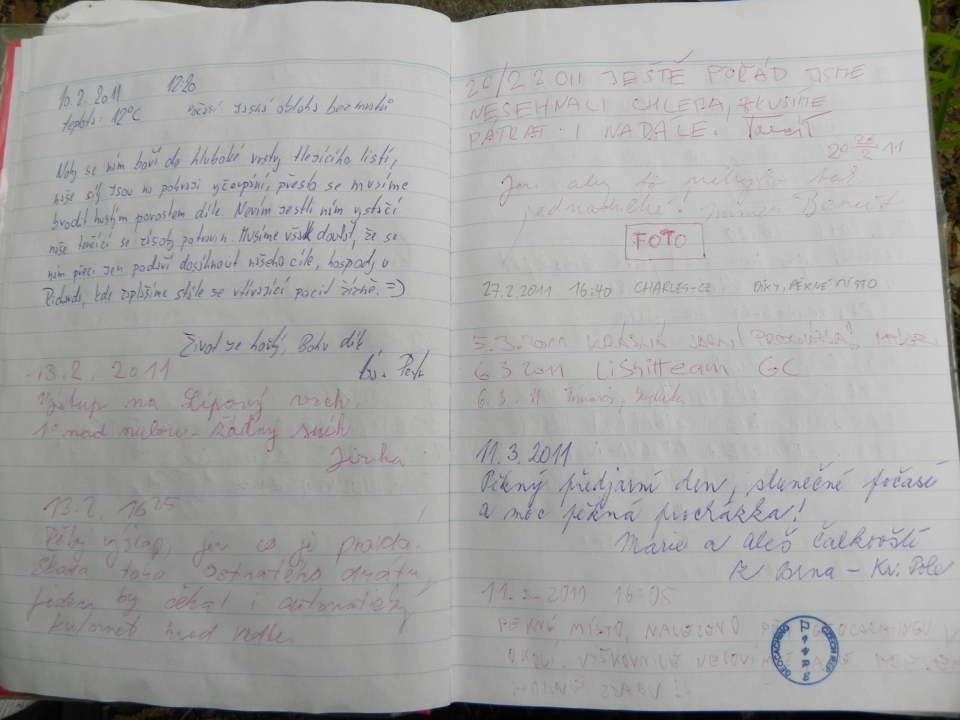 10.2.2011 12:20
teplota: 12°C Počasí: Jasná obloha bez mraků
Nohy se nám boří do hluboké vrstvy tlejícího listí,
naše síly jsou na pokraji vyčerpání, přesto se musíme
brodit hustým porostem dále. Nevím jestli nám vystačí
naše tenčící se zásoby potravin. Musíme však doufat, že se
nám přeci jen podaří dosáhnout našeho cíle, hospody u
kde zaplašíme stále se vtírající pocit žízně. =)
Život je hořký, Bohu dík
13.2.2011
Výstup na Lipový vrch.
1° nad nulou - žádný sníh
Jirka
13.2. 16 25
výšlap, jen co je pravda.
Škoda toho ostnatého drátu,
jeden by čekal i automatický
kulomet hned vedle
26/2 2011 JEŠTĚ POŘÁD JSME
NESEHNALI CHLEBA, ZKUSÍME
PÁTRAT I NADÁLE.
20 26/2 11
Jen aby to nebylo tak
jednoduché!
FOTO
27.2.2011 16:40 CHARLES-CZ DÍKY, PĚKNÉ MÍSTO
5.3.2011 KRÁSNÁ JARNÍ PROCHÁZKA!
6.3.2011 Lishitteam GC
6.3. 11
11.3.2011
Pěkný předjarní den, slunečné počasí
a moc pěkná procházka!
Marie a Aleš Čalkovští
z Brna - Kr. Pole
11.3.2011 16:05
PĚKNÉ MÍSTO, NALEZENO PŘI GEOCACHINGU V
OKOLÍ.
HODNĚ ZDARU!!
GEOCACHING CZECH REP